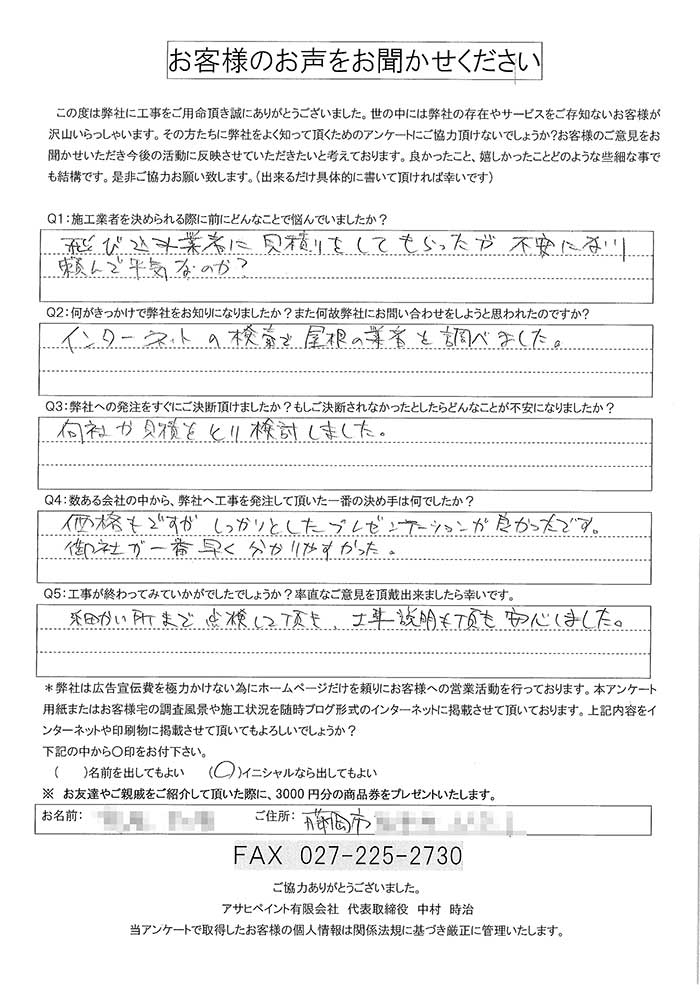 お客様のお声をお聞かせください
この度は弊社に工事をご用命頂き誠にありがとうございました。世の中には弊社の存在やサービスをご存知ないお客様が
沢山いらっしゃいます。その方たちに弊社をよく知って頂くためのアンケートにご協力頂けないでしょうか?お客様のご意見をお
聞かせいただき今後の活動に反映させていただきたいと考えております。良かったこと、嬉しかったことどのような些細な事で
も結構です。是非ご協力お願い致します。(出来るだけ具体的に書いて頂ければ幸いです)
Q1:施工業者を決められる際に前にどんなことで悩んでいましたか?
飛び込み業者に見積りをしてもらったが 不安になり
頼んで平気なのか?
Q2:何がきっかけで弊社をお知りになりましたか?また何故弊社にお問い合わせをしようと思われたのですか?
インターネットの検索で屋根の業者を調べました。
Q3:弊社への発注をすぐにご決断頂けましたか?もしご決断されなかったとしたらどんなことが不安になりましたか?
何社か見積をとり検討しました。
Q4:数ある会社の中から、弊社へ工事を発注して頂いた一番の決め手は何でしたか?
価格もですが しっかりとしたプレゼンテーションが良かったです。
御社が一番早く分かりやすかった。
Q5:工事が終わってみていかがでしたでしょうか?率直なご意見を頂戴出来ましたら幸いです。
細かい所まで点検して頂き、工事説明も頂き安心しました。
*弊社は広告宣伝費を極力かけない為にホームページだけを頼りにお客様への営業活動を行っております。本アンケート
用紙またはお客様宅の調査風景や施工状況を随時ブログ形式のインターネットに掲載させて頂いております。上記内容をイ
ンターネットや印刷物に掲載させて頂いてもよろしいでしょうか?
下記の中から〇印をお付下さい。
( )名前を出してもよい (〇)イニシャルなら出してもよい
※ お友達やご親戚をご紹介して頂いた際に、3000円分の商品券をプレゼントいたします。
お名前: ご住所: 藤岡市
FAX 027-225-2730
ご協力ありがとうございました。
アサヒペイント有限会社 代表取締役 中村 時治
当アンケートで取得したお客様の個人情報は関係法規に基づき厳正に管理いたします。